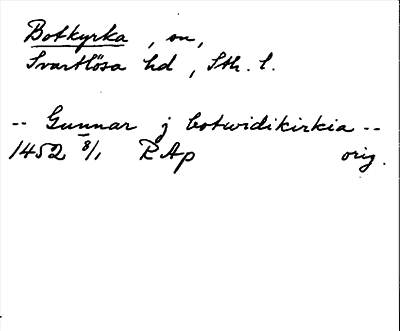 Botkyrka, sn,
Svartlösa hd, Sth. l.
-- Gunnar j botwidikirkia --
1452 8/1 RAp orig.